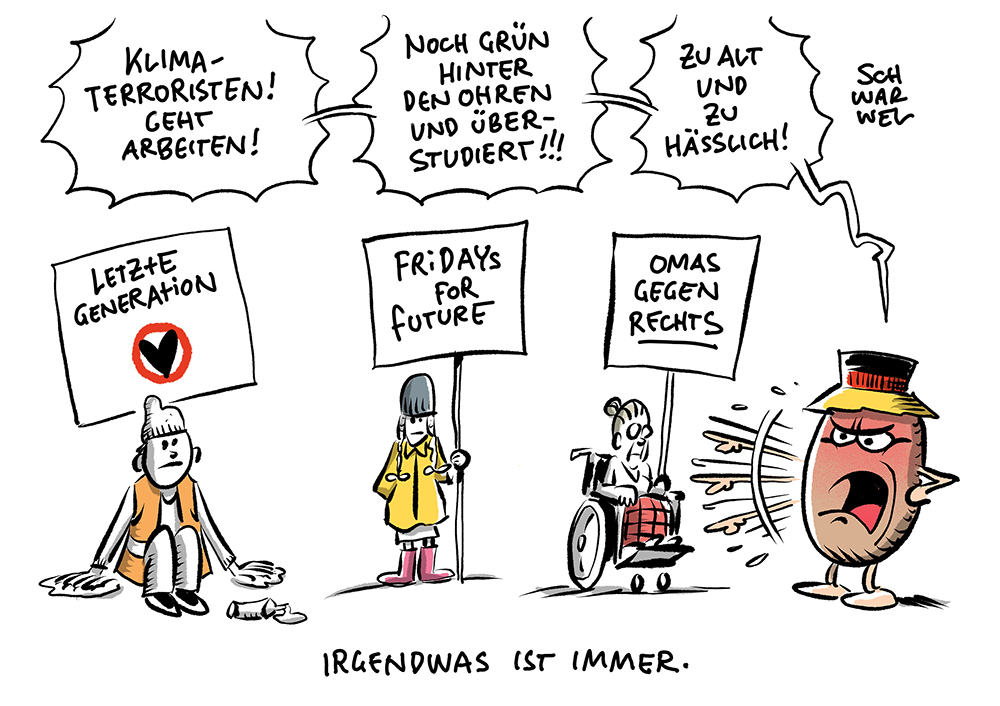 KLIMA-
TERRORISTEN!
GEHT
ARBEITEN!
NOCH GRÜN
HINTER
DEN OHREN
UND ÜBER-
STUDIERT!!!
ZU ALT
UND
ZU
HÄSSLICH!
SCH
WAR
WEL
LETZTE
GENERATION
FRIDAYS
FOR
FUTURE
OMAS
GEGEN
RECHTS
IRGENDWAS IST IMMER.